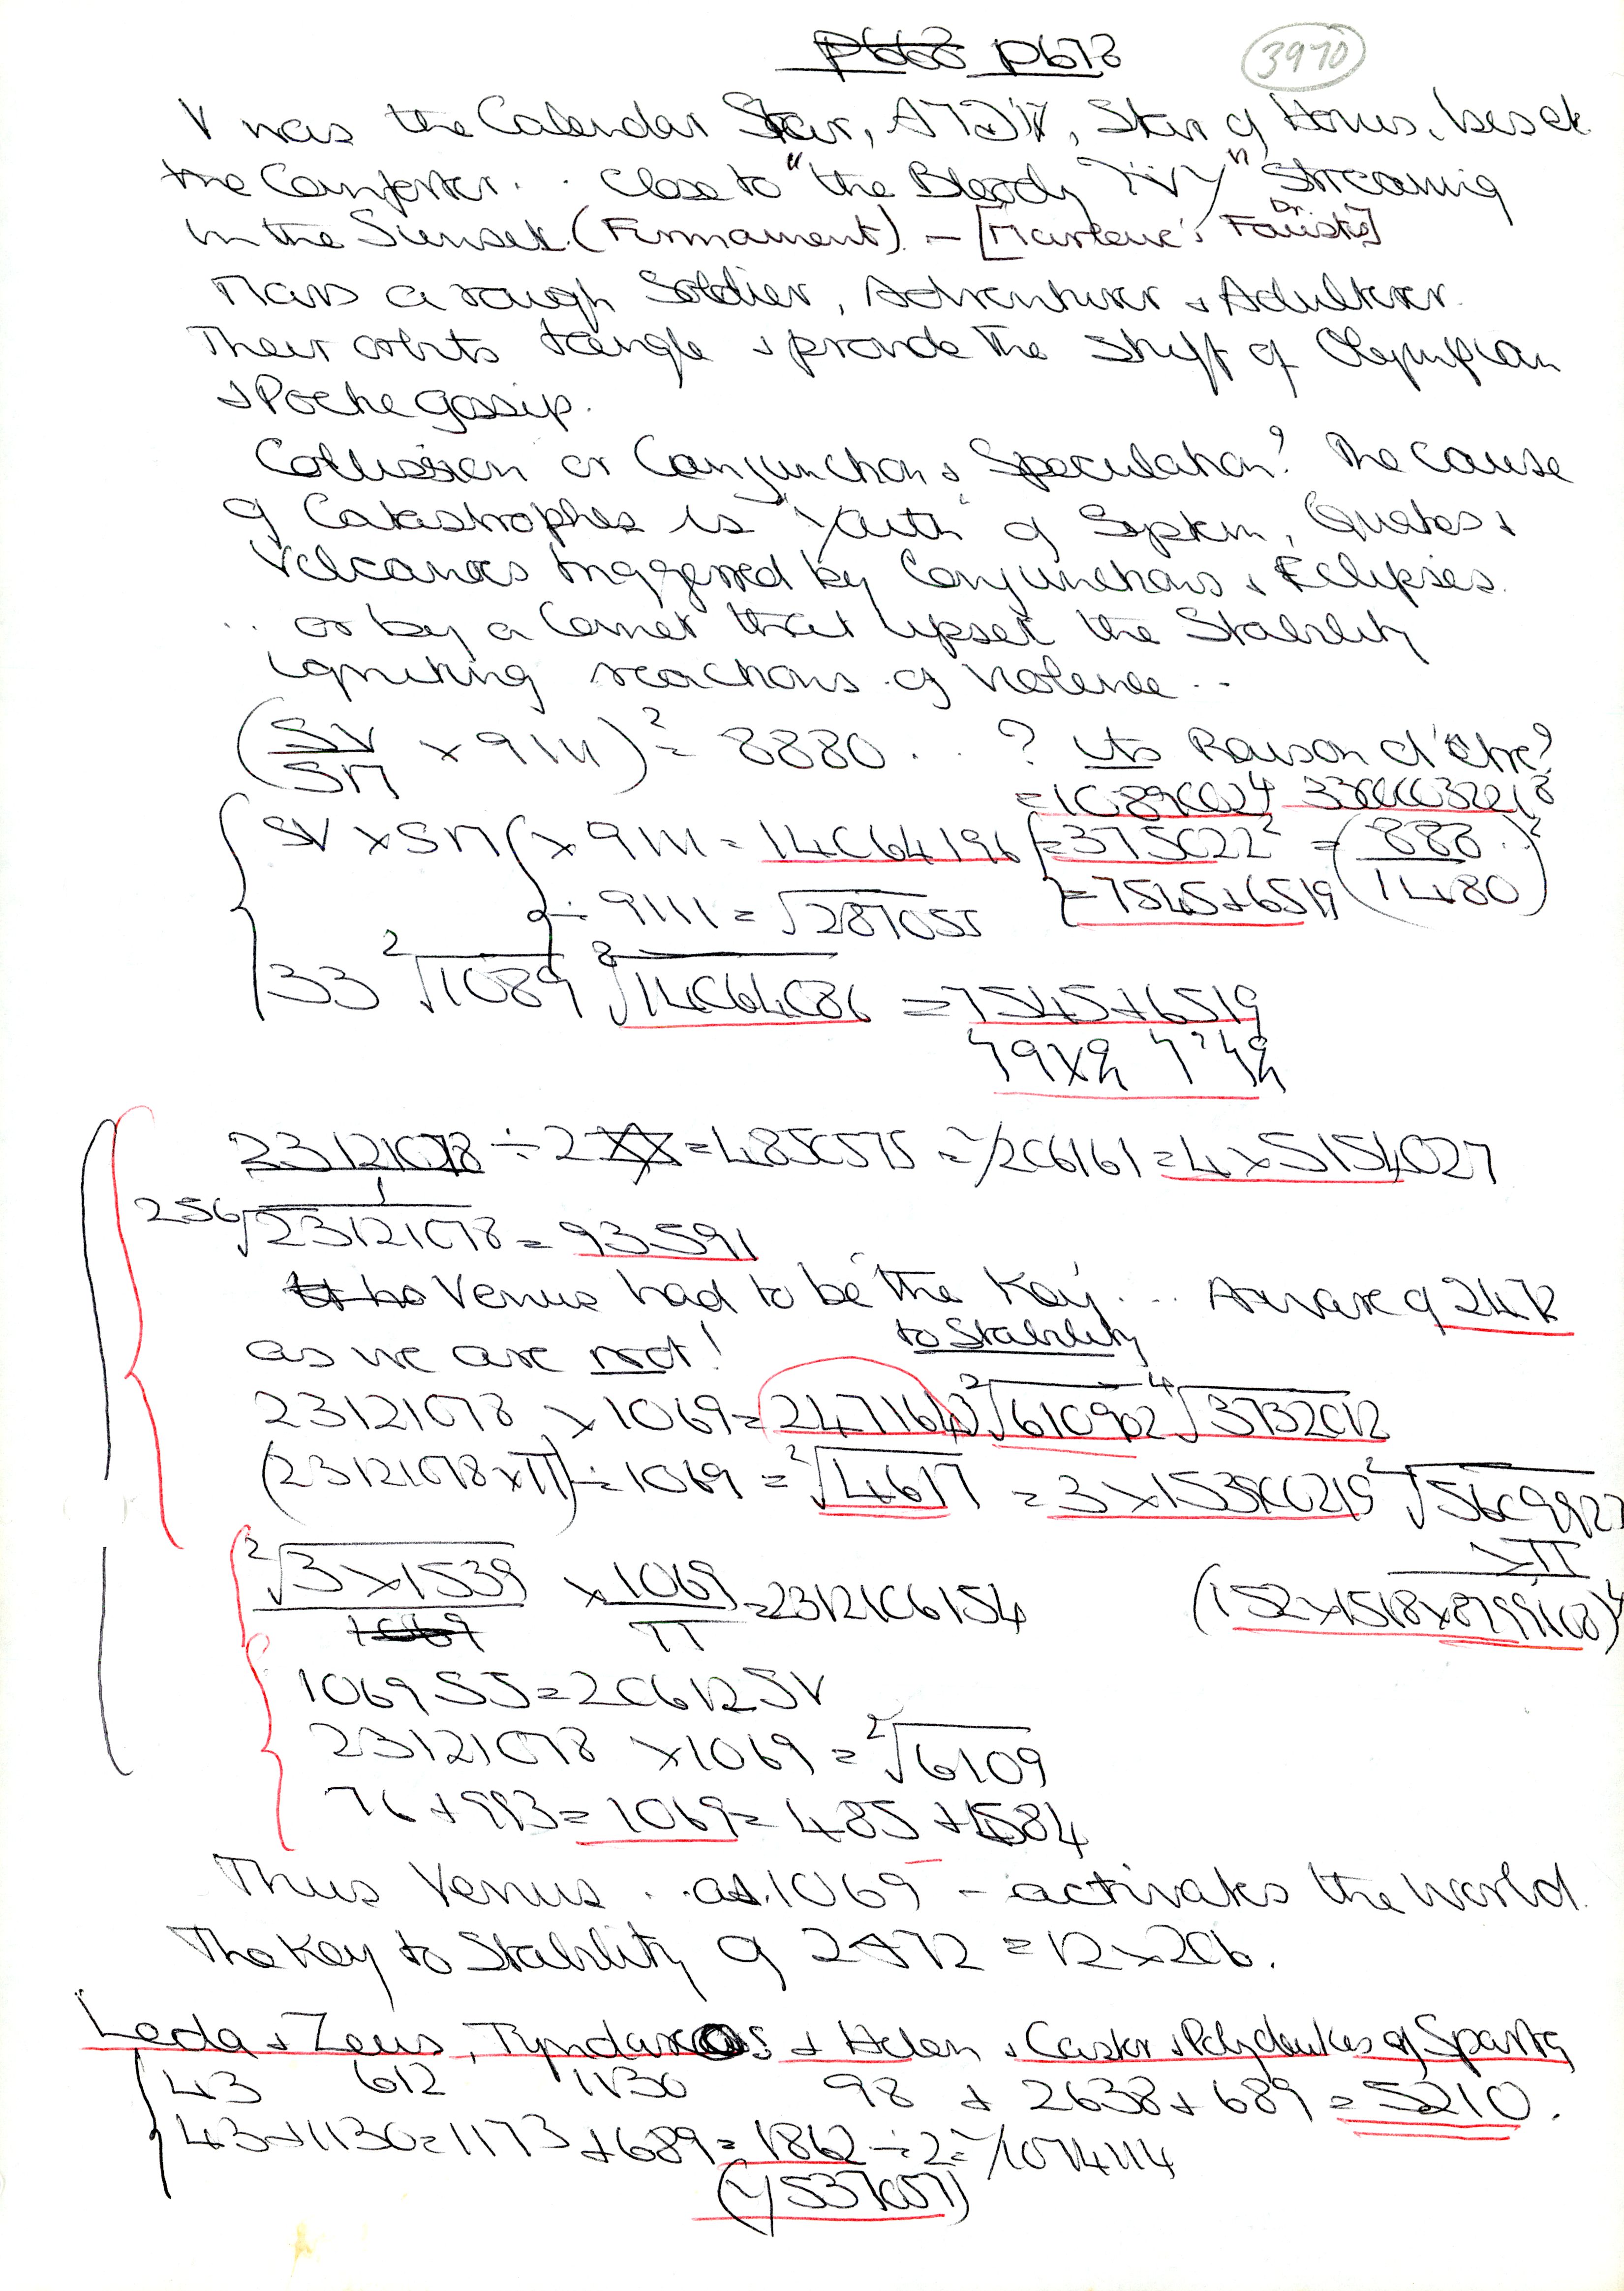 p678 3970
V was the Calendar Star, Star of Horus, beset
the Comforter . . Close to "the Bloody Streaming
in the Sunset (Firmament). - [Marlowe's Dr. Faustus]
Mars a rough Soldier, Adventurer & Adulterer.
Their orbits tangle & provide the stuff of Olympian
& Poetic gossip.
Collision or Conjunction & Speculation? The cause
of Catastrophes is "Youth" of System, Quakes &
Volcanoes triggered by Conjunctions & Eclipses.
.. or by a Comet that upset the Stability
igniting reactions of Violence ..
(SV/SM × 9111)² = 8880 . . ? Its Raison d'être?
SV × SM { × 9111 = 14064196 { = 375022² = (888/1480)²
÷ 9111 = √287055 { = 7545 + 6519
33 ²√1089 = 7545 + 6519
23121078 ÷ 2 = 4850575 = 4 × 5154027
256√23121078 = 93591
Venus had to be "the Key . . . Aware of 2472
to Stability
as we are not!
23121078 × 1069 = ²√610902 ⁴√3732012
(23121078 × π) ÷ 1069 = ²√4617
²√3 × 1539 × 1069/π = 2312106154
1069 SS = 20612 SV
23121078 × 1069 = ²√6109
76 + 993 = 1069 = 485 + 584
Thus Venus . . as 1069 - activates the World.
The Key to Stability of 2472 = 12 × 206.
Leda & Zeus, Tyndareos & Helen & Castor & Polydeukes of Sparta
43 612 1130 98 + 2638 + 689 = 5210.
43 + 1130 = 1173 + 689 = 1862 ÷ 2 =